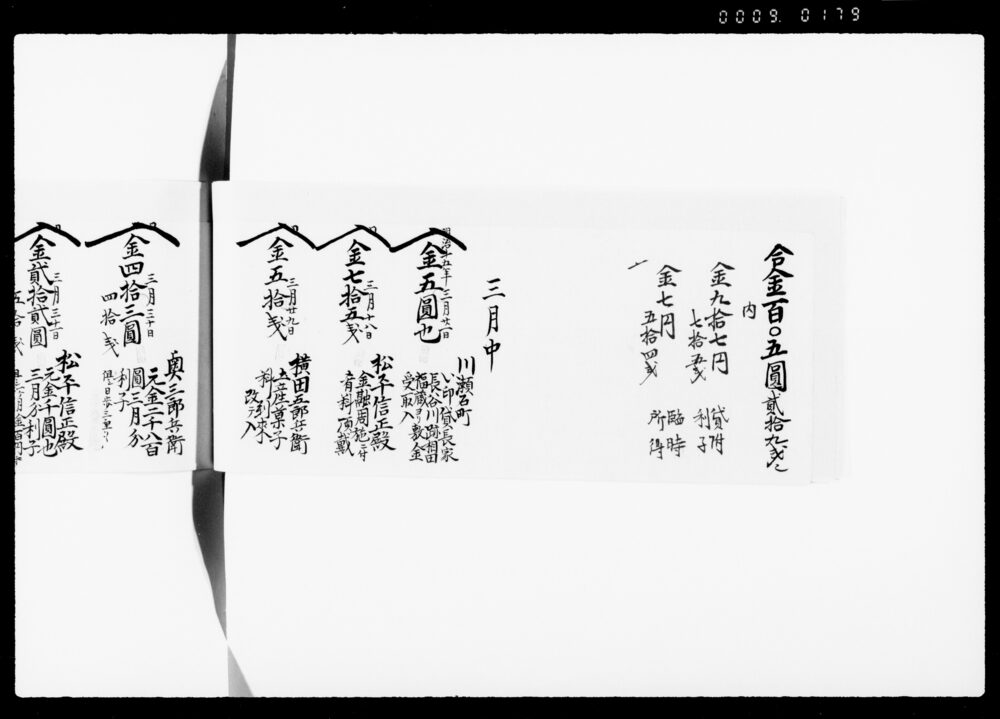 0009. 0179
合金百〇五圓貳拾九戋
内
金九拾七円
七拾五戋
貸附
利子
一
金七円
五拾四戋
臨時
所得
三月中
川瀬石町
明治十五年三月廿一日
金五圓也
い印貸長家
長谷川跡相田
福蔵ヨリ敷金
受取入
三月十八日
金七拾五戋
松平信正殿
金融周施ニ付
肴料頂戴
三月廿九日
金五拾戋
横田五郎兵衛
土産菓子
料到来
改テ入
三月三十日
金四拾三圓
四拾戋
奥三郎兵衛
元金二千八百
圓三月分
利子
三月三十日
金貳拾貳圓
五拾戋
松平信正殿
元金千圓也
三月分利子